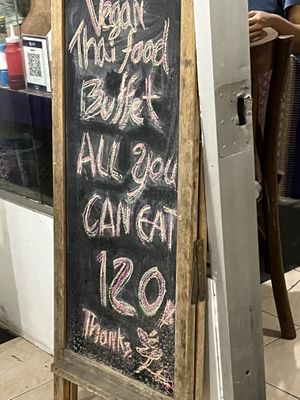 Vegan
Thai food
Buffet
ALL You
CAN EAT
120
Thanks